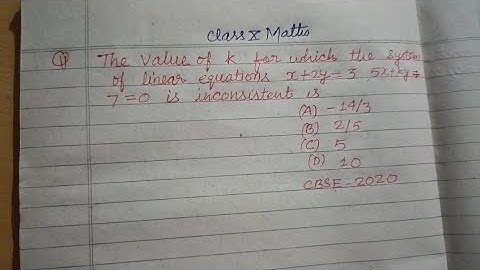 Class X Maths
Q The value of k for which the system
of linear equations x+2y=3 5x+ky+
7=0 is inconsistent is
(A) -14/3
(B) 2/5
(C) 5
(D) 10
CBSE-2020